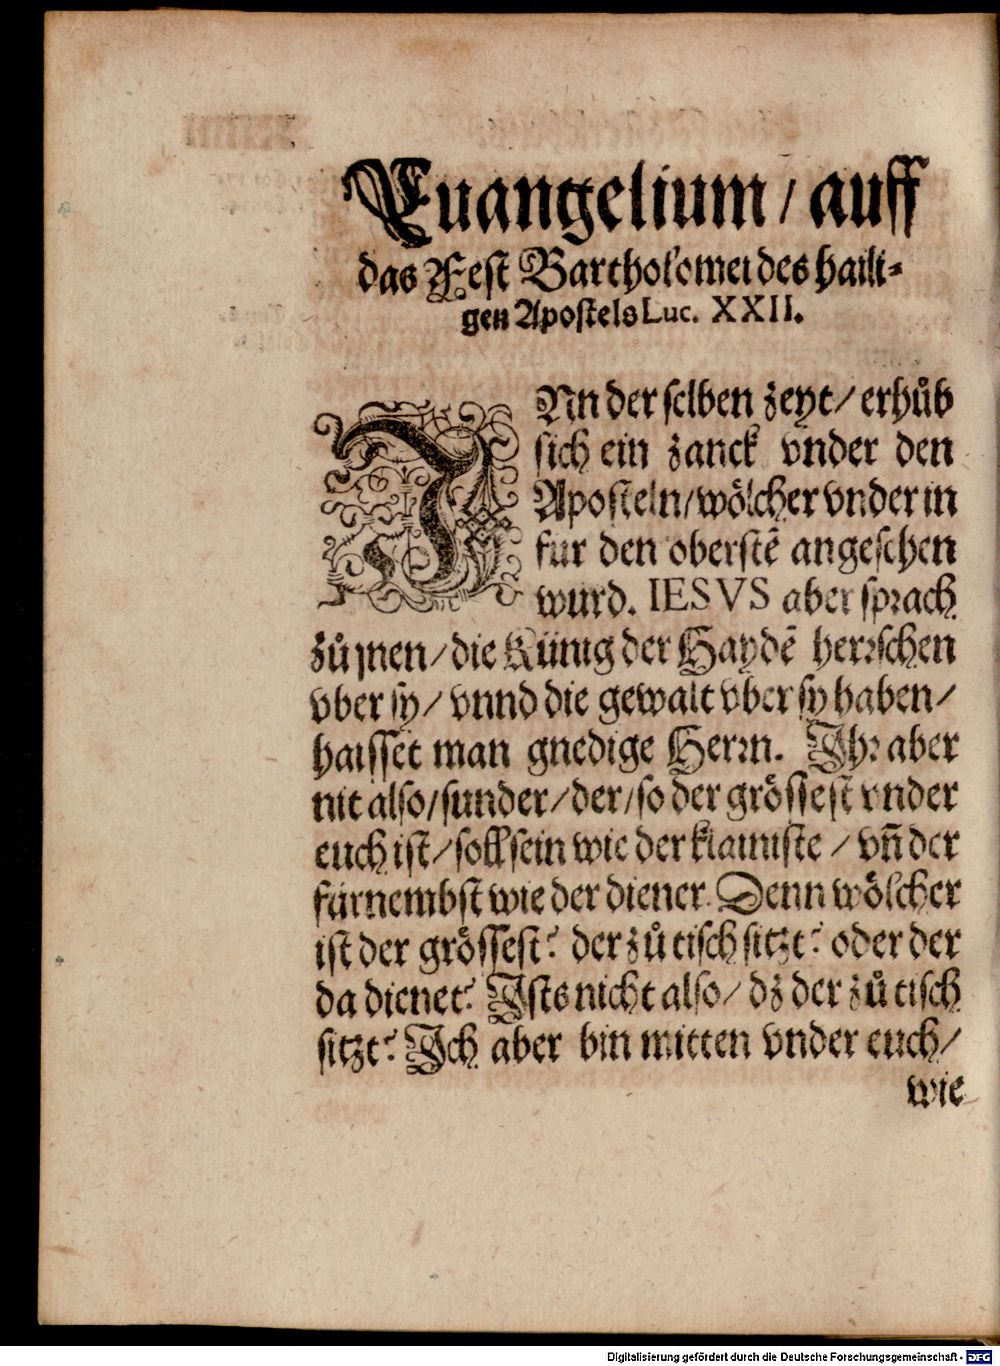 Euangelium / auff
das Fest Bartholomei des haili⸗
gen Apostels Luc. XXII.
INn der selben zeyt / erhůb
sich ein zanck vnder den
Aposteln / wölcher vnder in
fur den oberstē angesehen
wurd. IESVS aber sprach
zů jnen / die Künig der Haydē herrschen
vber sy / vnnd die gewalt vber sy haben /
haisset man gnedige Herrn. Ihr aber
nit also / sunder / der / so der grössest vnder
euch ist / soll sein wie der klainiste / vñ der
fürnembst wie der diener. Denn wölcher
ist der grössest? der zů tisch sitzt? oder der
da dienet? Ists nicht also / dz der zů tisch
sitzt? Ich aber bin mitten vnder euch /
wie
Digitalisierung gefördert durch die Deutsche Forschungsgemeinschaft - DFG